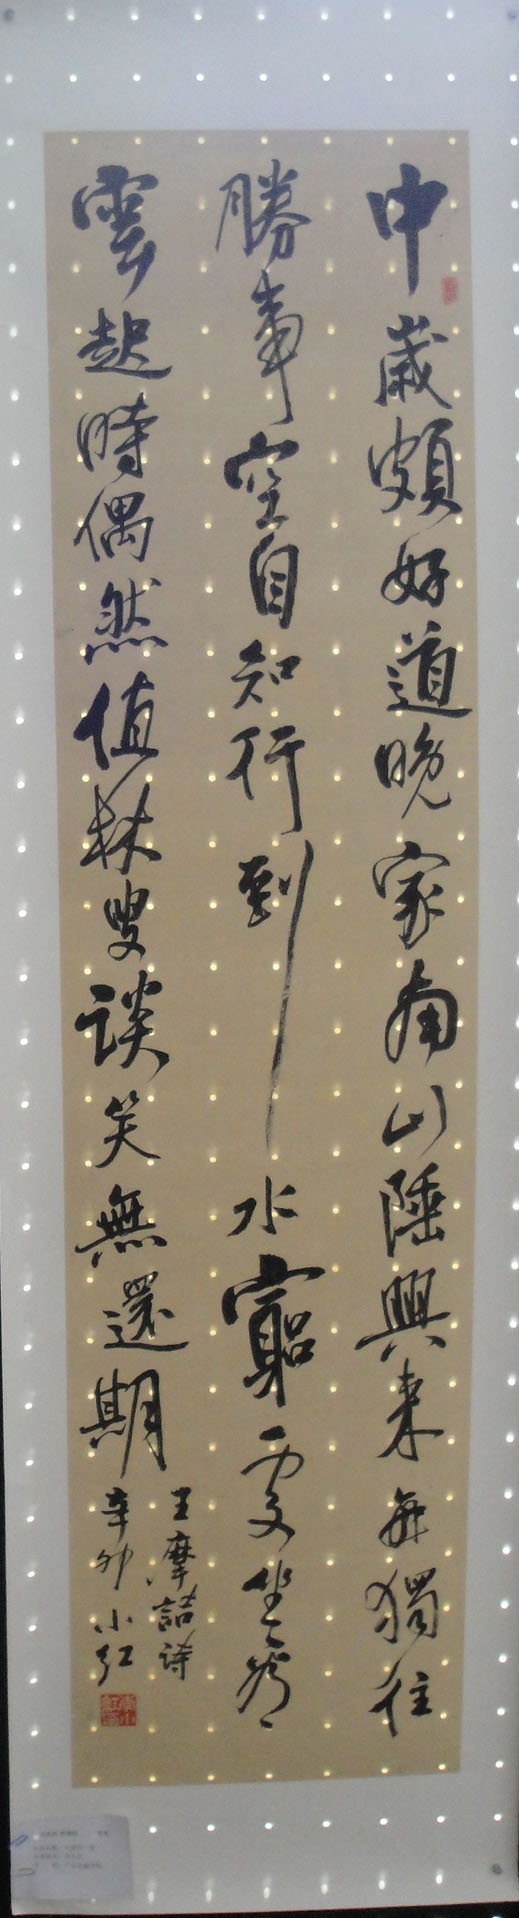 中歲頗好道晚家南山陲興來每獨往
勝事空自知行到水窮處坐看
雲起時偶然值林叟談笑無還期
王摩詰诗
辛卯小红